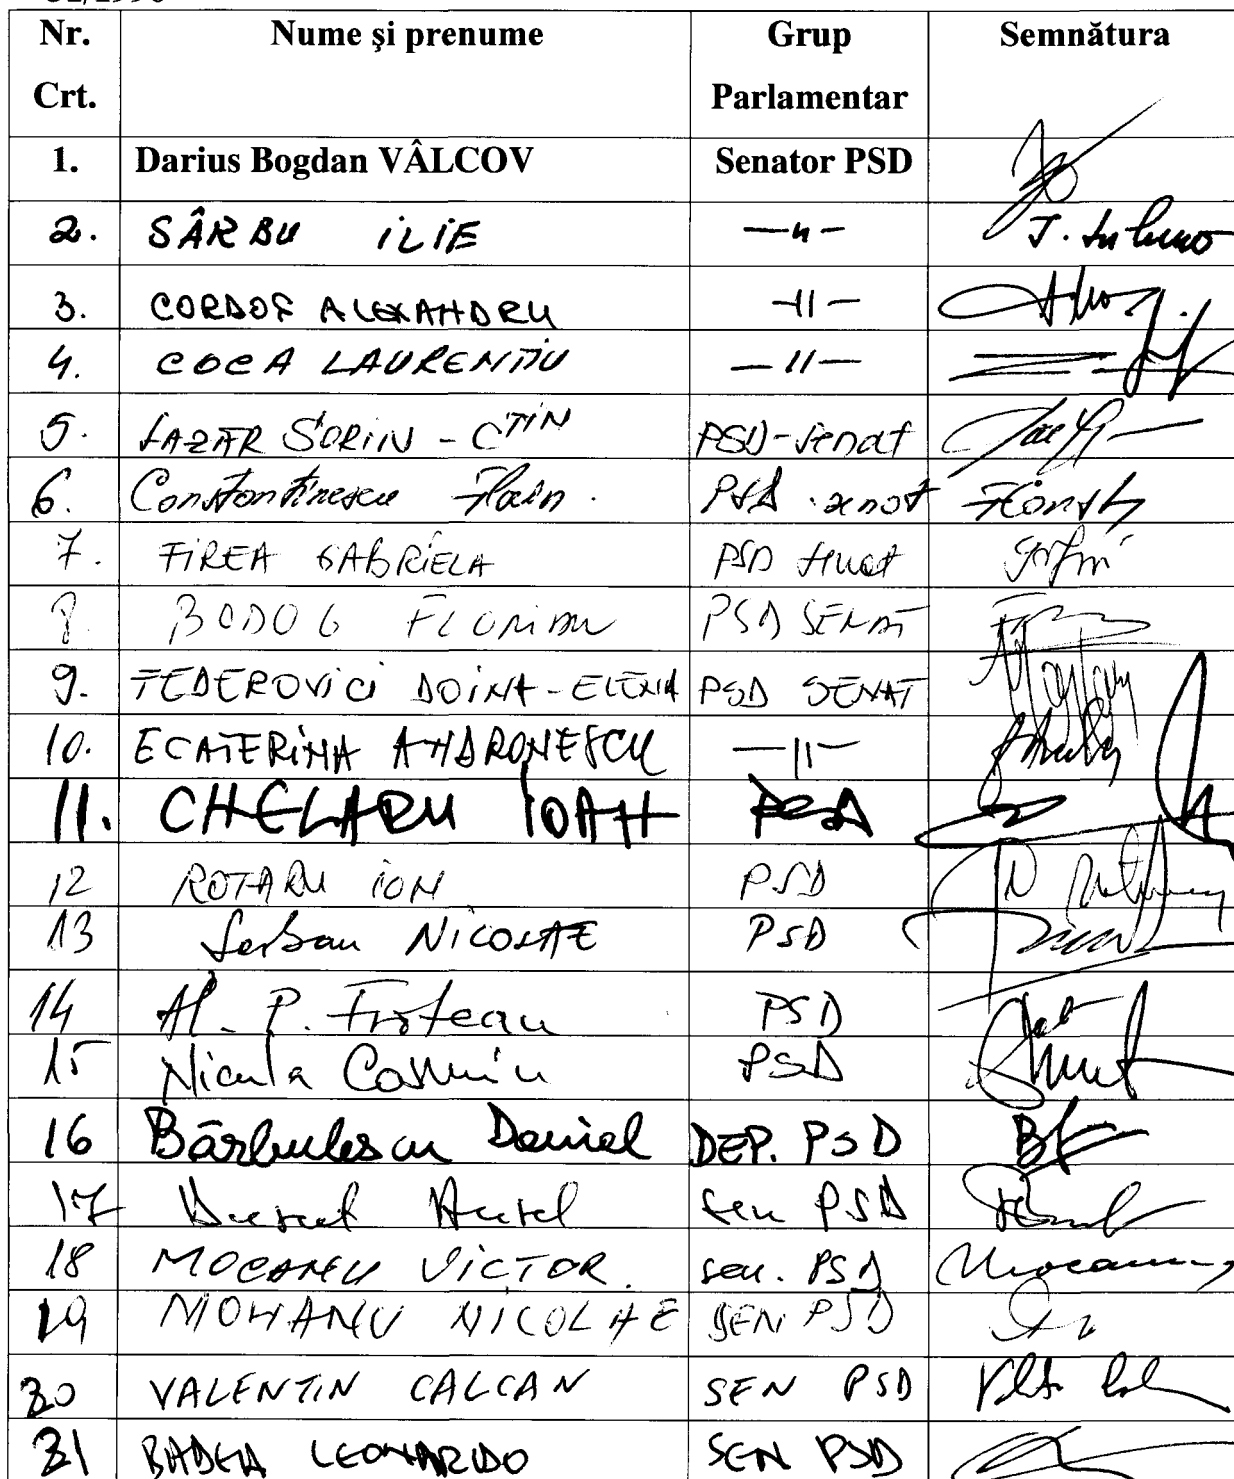 Nr. Crt. Nume şi prenume Grup Parlamentar Semnătura
1. Darius Bogdan VÂLCOV Senator PSD
2. SÂRBU ILIE —"—
3. CORDOŞ ALEXANDRU —II—
4. COCA LAURENŢIU —II—
5. LAZĂR SORIN - CTIN PSD-Senat
6. Constantinescu Florin. PSD senat
7. FIREA GABRIELA PSD Senat
8. BODOG FLORIAN PSD SENAT
9. FEDEROVICI DOINA-ELENA PSD SENAT
10. ECATERINA ANDRONESCU —II—
11. CHELARU IOAN PSD
12 ROTARU ION PSD
13 Serban NICOLAE PSD
14 Al. P. PSD
15 Nicula Cosmin PSD
16 Bărbulescu Daniel DEP. PSD B
17 Aurel sen PSD
18 MOCANU VICTOR. sen. PSD Mocanu
19 MOHANU NICOLAE SEN PSD
20 VALENTIN CALCAN SEN PSD
21 BADEA LEONARDO SEN PSD